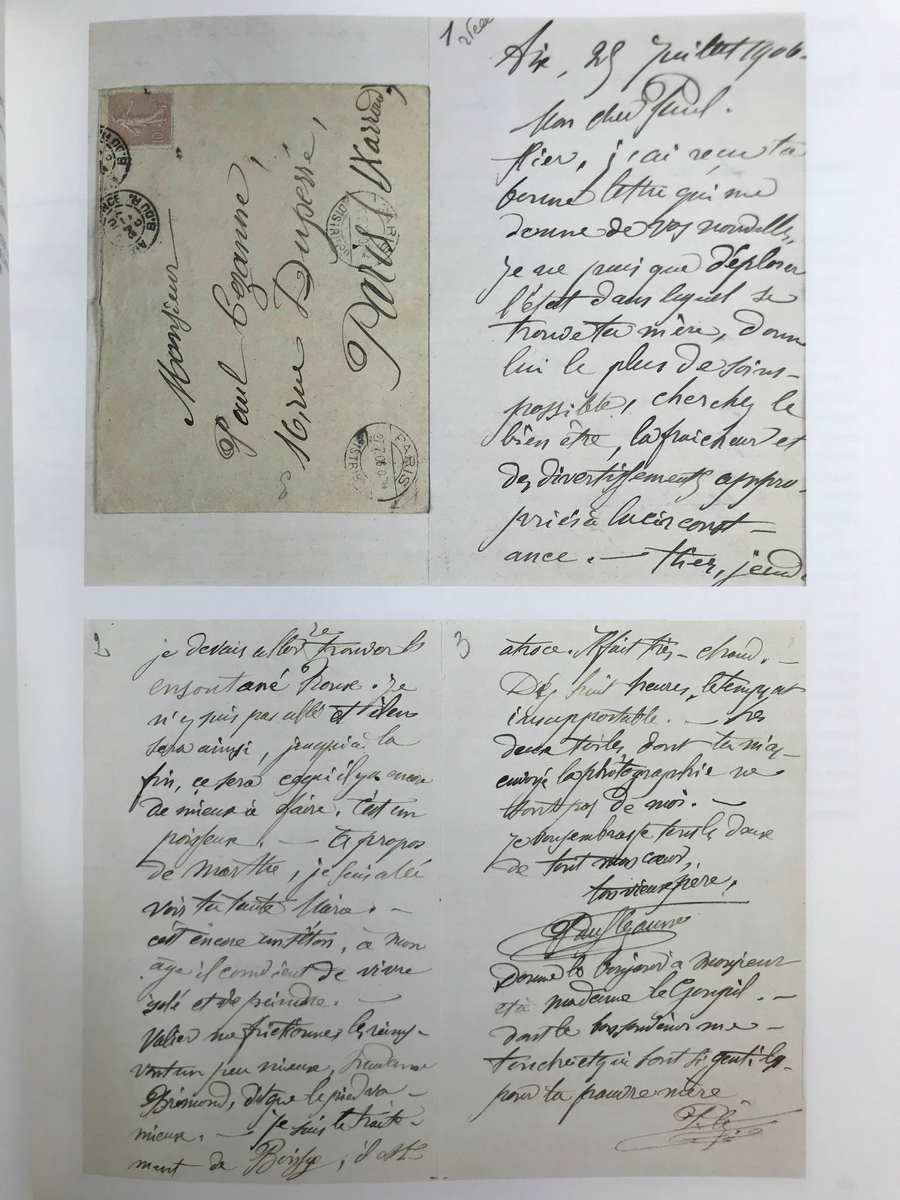 Monsieur
Paul Cezanne,
16 rue Duperré,
Paris
PARIS
DISTRIB
PARIS
27.7.06
DISTRIB
1
Aix, 25 Juillet 1906.
Mon cher Paul.
Hier, j'ai reçu ta
bonne lettre qui me
donne de vos nouvelles,
je ne puis que déplorer
l'état dans lequel se
trouve ta mère, donne
lui le plus de soins
possible, cherchez le
bien être, la fraîcheur et
des divertissements appro-
priés à la circonst-
ance. — Hier, jeudi
2
je devais aller retrouver le
ensoutané Roux. Je
n'y suis pas allé et il en
sera ainsi, jusqu'à la
fin, ce sera ce qu'il y a encore
de mieux à faire. C'est un
poisseux. — A propos
de Marthe, je suis allé
voir ta tante Marie. —
c'est encore un , à mon
âge il convient de vivre
isolé et de peindre. —
Vallier me frictionne, les reins
vont un peu mieux, madame
Brémond, dit que le pied va
mieux. — Je suis le traite-
ment de Boissy, il est
3
atroce. Il fait très-chaud. —
Dès huit heures, le temps est
insupportable. — Les
deux toiles, dont tu m'as
envoyé la photographie ne
sont pas de moi. —
je vous embrasse tous les deux
de tout mon cœur,
ton vieux père,
Paul Cezanne
Donne le bonjour à Monsieur
et à madame le Goupil. —
dont le bon souvenir me —
touche et qui sont si gentils
pour ta pauvre mère
P. Cz.